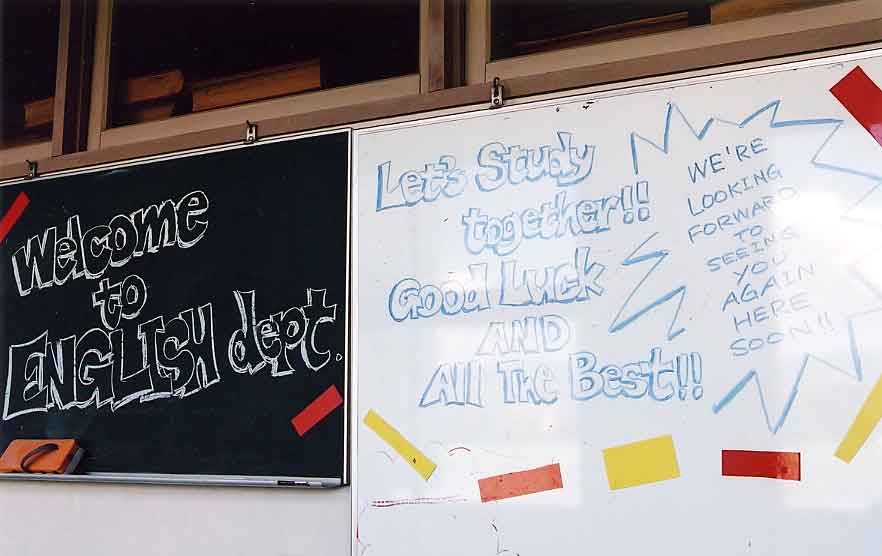 Welcome
to
ENGLISH dept.
Let's Study
together!!
Good Luck
AND
All The Best!!
WE'RE
LOOKING
FORWARD
TO
SEEING
YOU
AGAIN
HERE
SOON!!